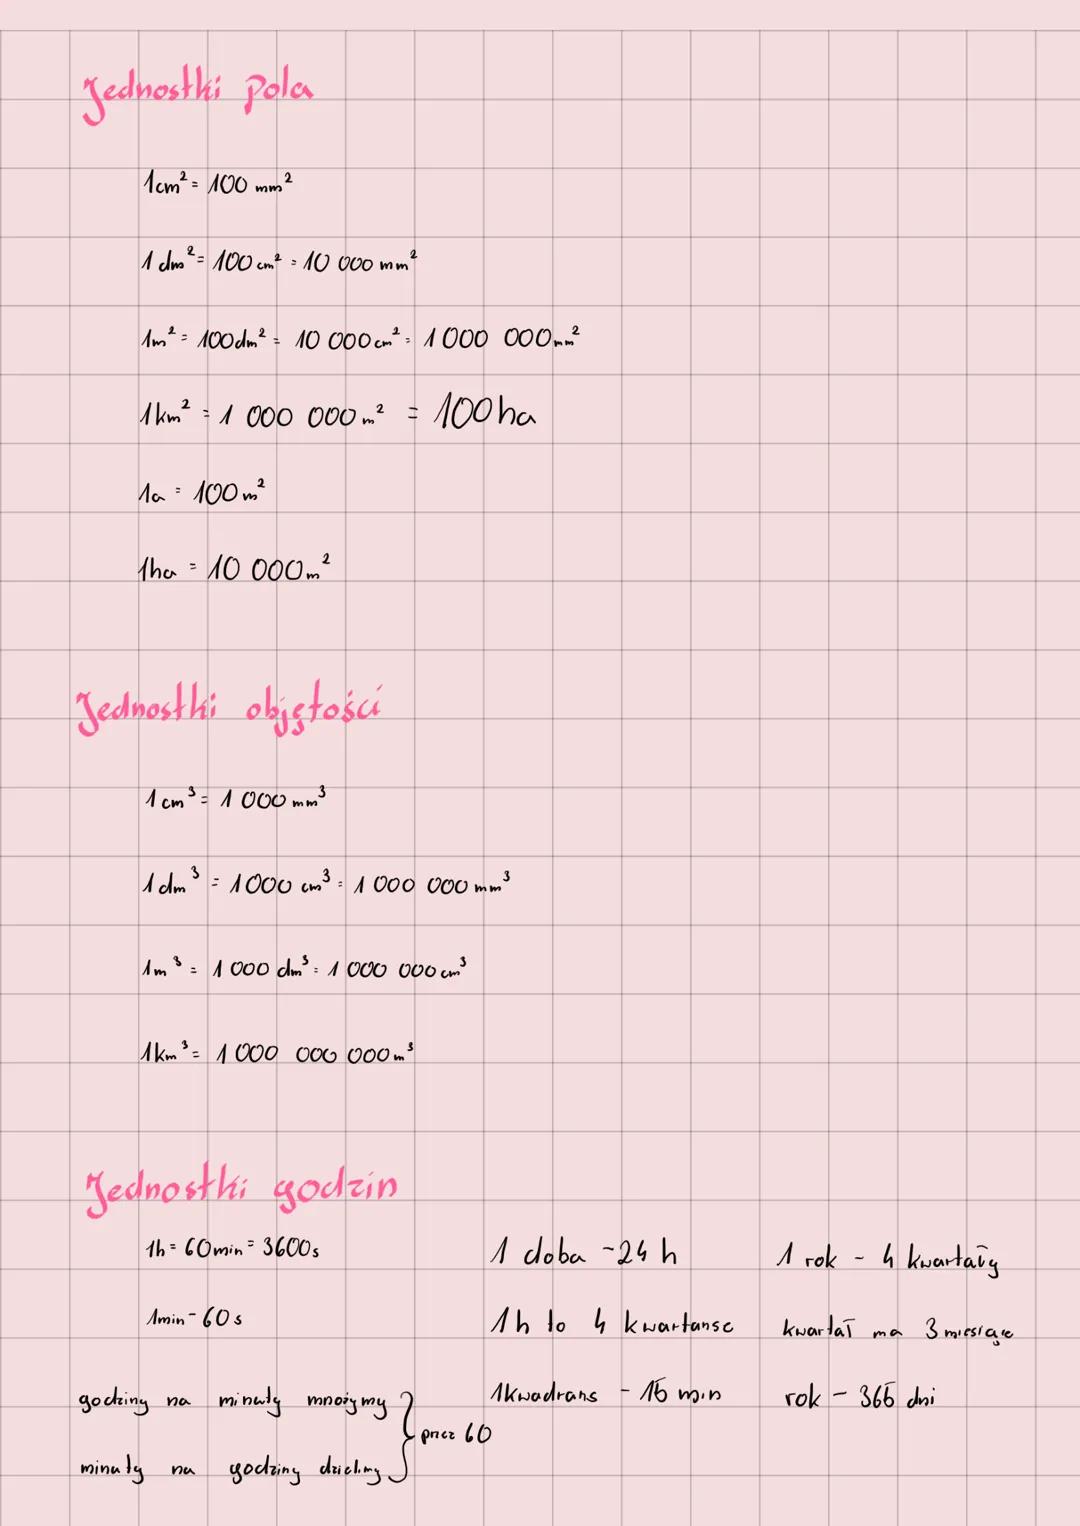 Jednostki pola
1cm² = 100 mm²
1 dm² = 100 cm² = 10 000 mm²
1m² = 100dm² = 10 000 cm² = 1 000 000 mm²
1km² = 1 000 000 m² = 100 ha
1a = 100 m²
1ha = 10 000 m²
Jednostki objętości
1 cm³ = 1 000 mm³
1 dm³ = 1000 cm³ = 1 000 000 mm³
1m³ = 1 000 dm³ = 1 000 000 cm³
1km³ = 1 000 000 000 m³
Jednostki godzin
1h = 60min = 3600s
1min - 60 s
godziny na minuty mnożymy
minuty na godziny dzielimy
} przez 60
1 doba - 24 h
1h to 4 kwartanse
1kwadrans - 15 min
1 rok - 4 kwartały
kwartał ma 3 miesiące
rok - 365 dni